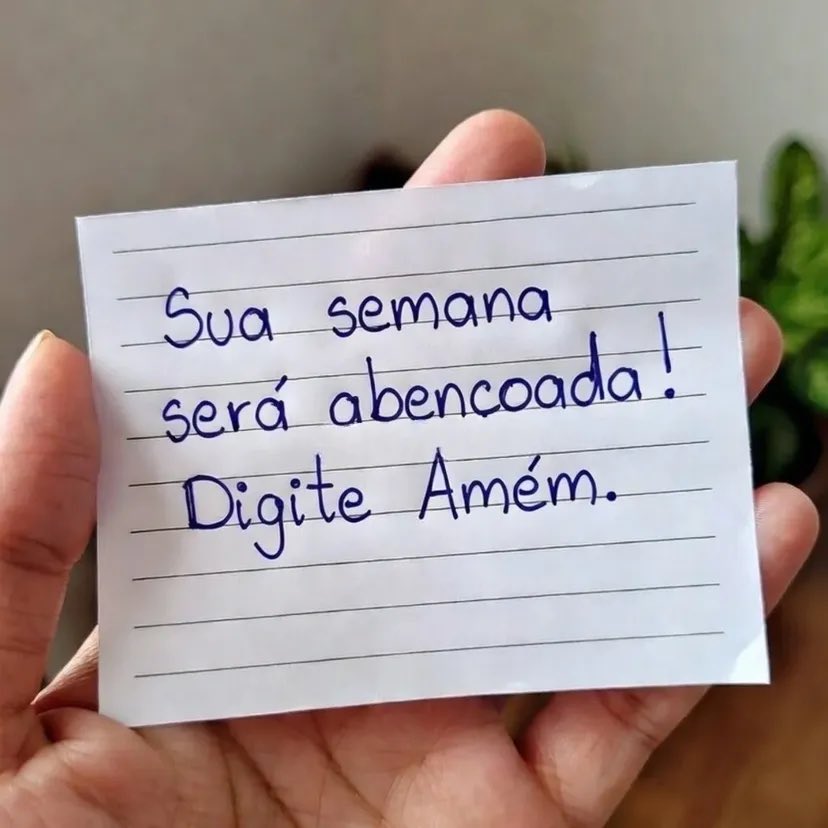 Sua semana
será abencoada!
Digite Amém.